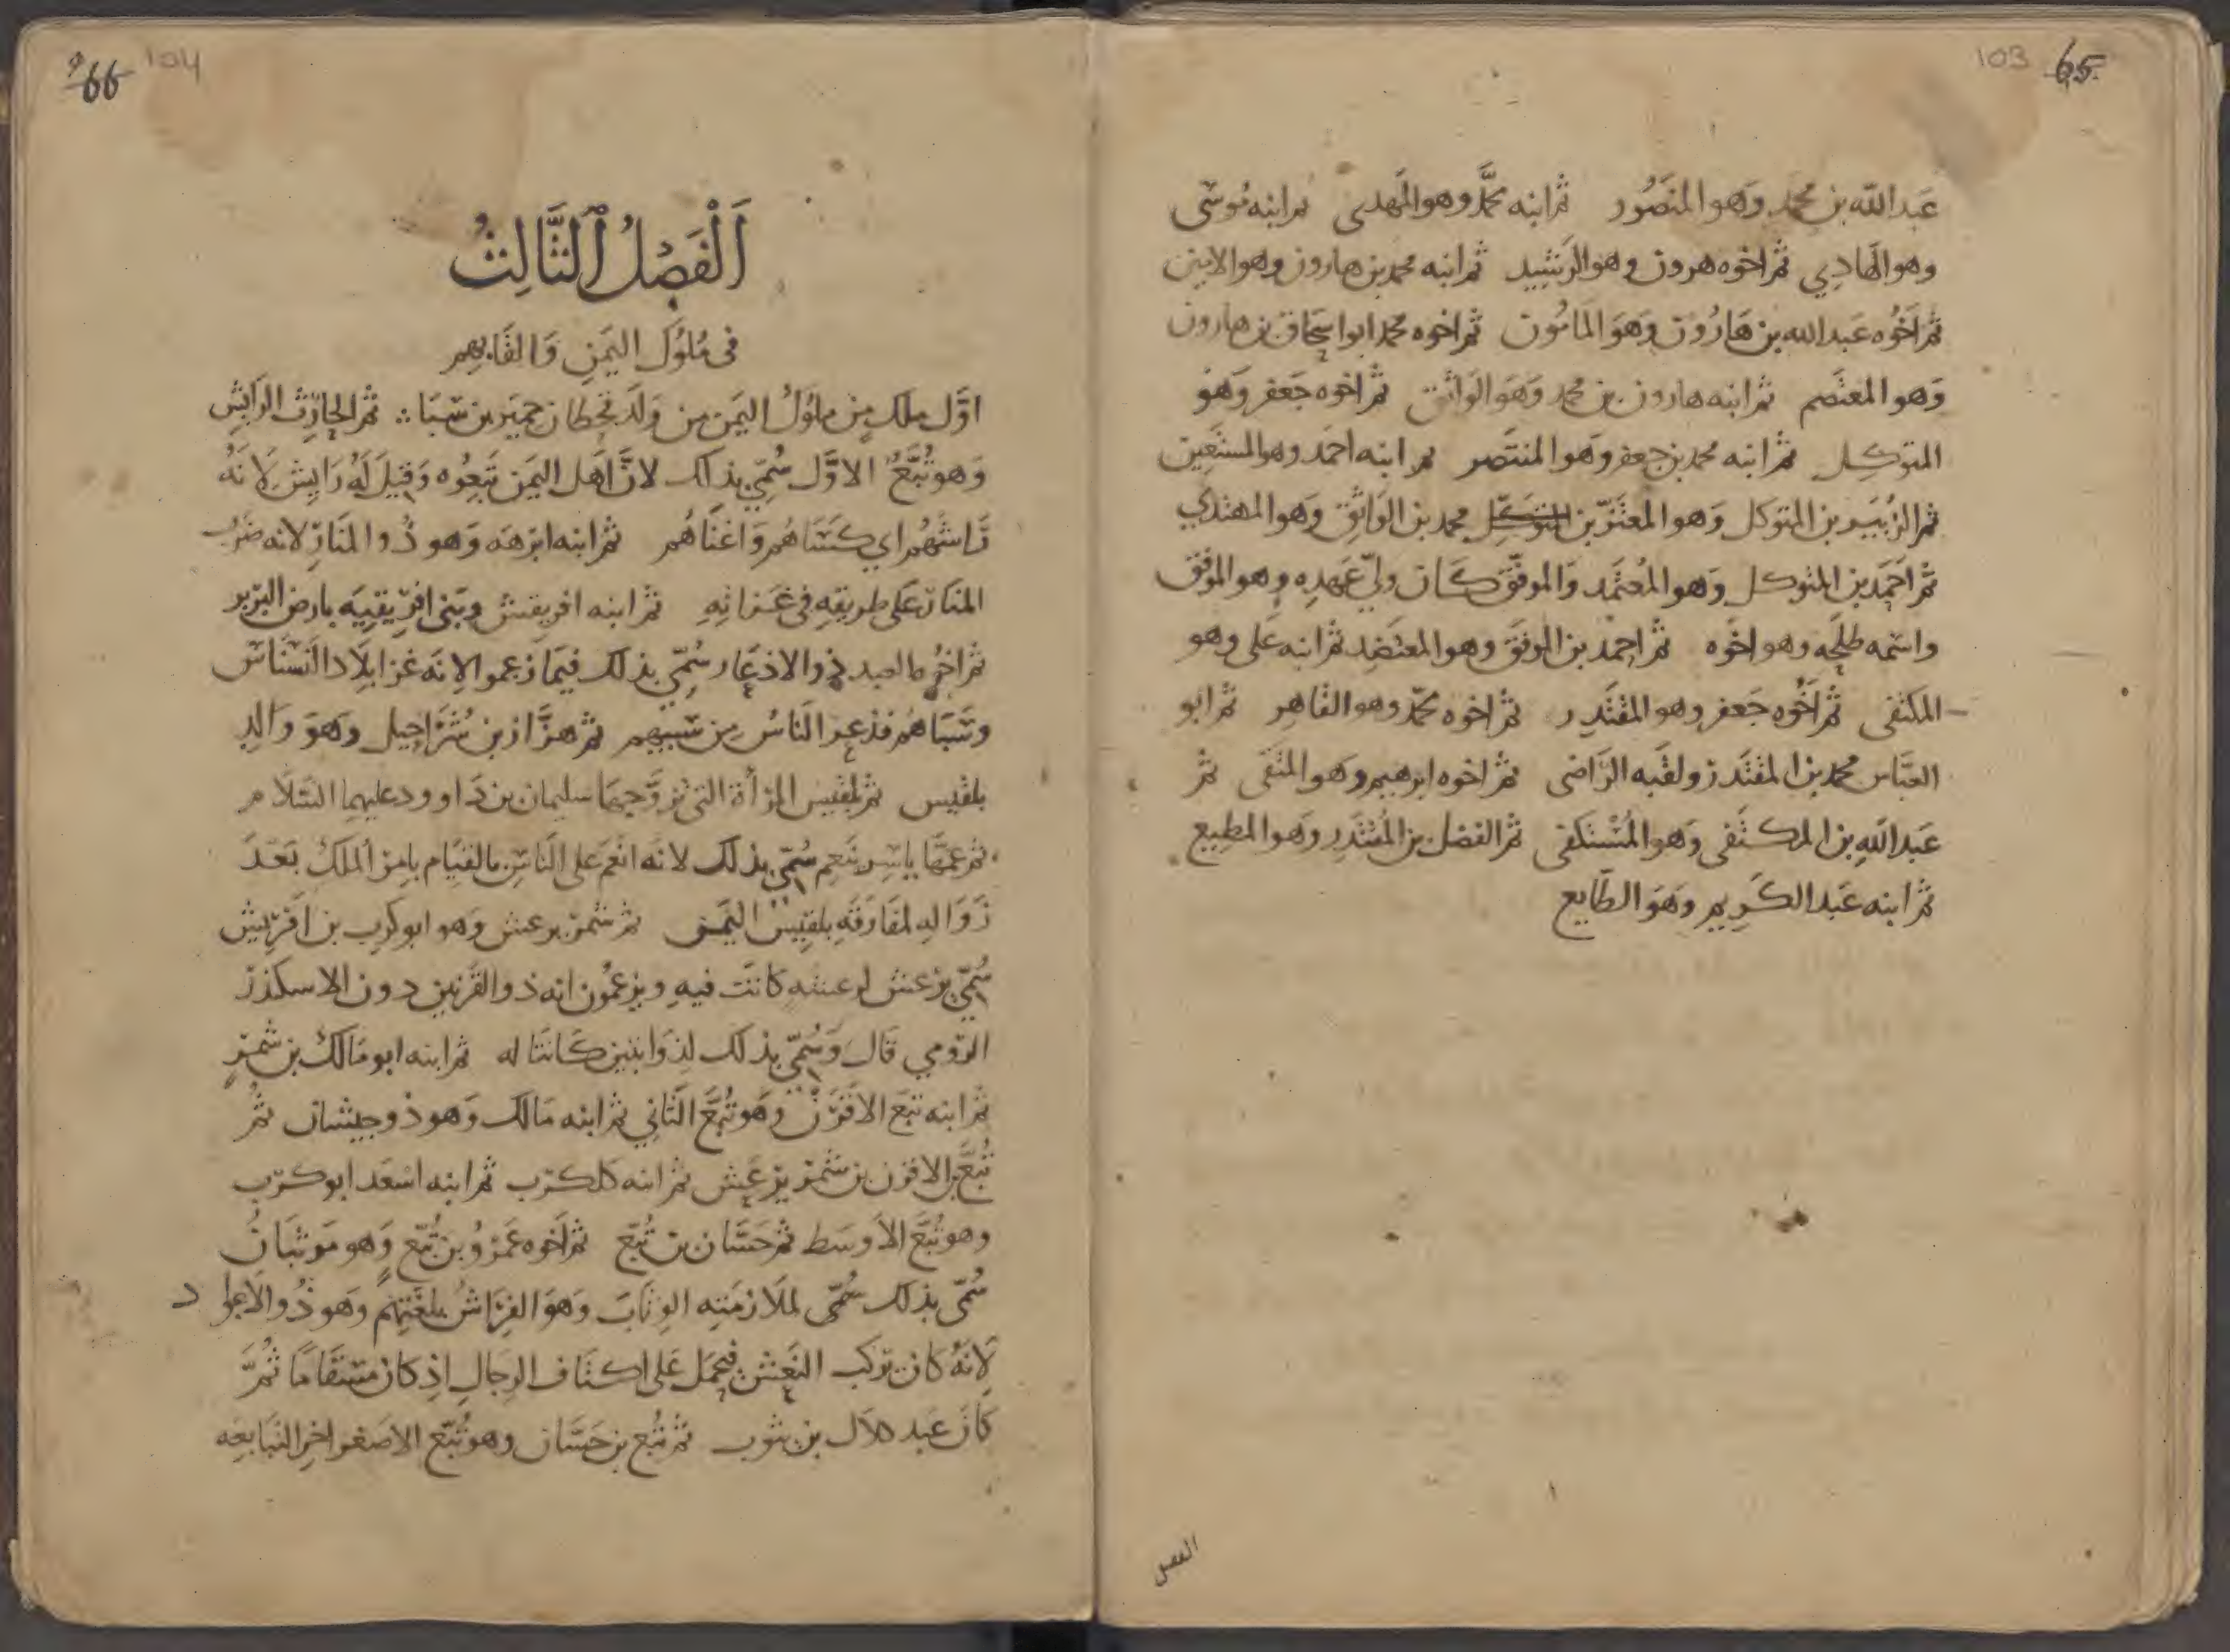 103 65
عَبد الله بن محمد وَهو المنصُور ثم ابنه محمَّد وهو المَهدى ثم ابنه مُوسَى
وهو الهَادِي ثم اخوه هرون وهو الرَشِيد ثم ابنه محمد بن هارون وهو الامين
ثم اَخُوه عَبد الله بن هَارُون وَهوَ المَامُون ثم اخوه محمد ابو اسحَاق بن هارون
وَهو المعتَصم ثم ابنه هارون بن محمد وَهوَ الوَاثق ثم اخوه جَعفر وَهوَ
المتوكِل ثم ابنه محمد بن جعفر وَهو المنتَصر ثم ابنه احمَد وهو المستَعِين
ثم الزُبَير بن المتوكل وَهو المعتَزّ بن المتوكل محمد بن الوَاثِق وَهو المهتدي
ثم احَمَد بن المتوكل وَهو المُعتَمد وَالموفَّق كَان وليّ عَهدِه وهو الموَفق
واسمه طلحَه وهو اخوَه ثم احِمد بن الموفَق وهو المعتَضِد ثم ابنه عَلى وهو
المكتفى ثم اَخُوه جَعفر وهو المقتَدِر ثم اخوه محمّد وهو القَاهِر ثم ابو
العبَّاس محمد بن المقتَدر ولقبه الرَاضى ثم اخوه ابرهيم وَهو المتقى ثم
عَبد اللهِ بن المكتَفى وَهو المُسْتكفى ثم الفضل بن المُقتَدِر وَهو المطيع
ثم ابنه عَبد الكَرِيم وَهوَ الطَايع
الفصل
66 104
اَلْفَصْلُ ٱلثَّالِثُ
فى مُلوُك اليَمَنِ وَالقَابِهِم
اوَّل مَلك مِن ملوُك اليَمَن من وَلَد قحطان حِميَر بن سَبَا ثم الحَارِث الرَايِش
وَهو تُبَّعُ الاوَّل سُمِّي بذلك لانَّ اَهَل اليَمَن تَبِعُوه وَقِيلَ لَهُ رَايِش لِاَنَهُ
رَاشَهُم اي كسَاهُم وَاغنَاهُم ثم ابنه ابرَهَه وَهو ذُو المَنَار لانه ضَرَب
المنَار عَلى طريقِهِ فى غَزاتِهِ ثم ابنه افريقش وبَنى افرِيقِيَه بارض البَربر
ثم اخُوه العبد ذو الاذعَار سُمِّي بذلك فيمَا زعموا لانَه غزا بلَاد النَسْنَاسِ
وسَبَاهُم فذعر النَاسُ مِن سَبيهِم ثم هَزَّاز بن شُرَاحِيل وَهوَ وَالِد
بلقيس ثم بلقيس المَرأة التى تزوَّجهَا سليمان بن دَاوود عليهما السَلَام
ثم عمهَا ياسِر يَنعِم سُمِّي بذلك لانه انعَم على النَاسِ بالقيَام بامر الملك بَعَدَ
زَوَالِه لمفَارَقَهِ بلقِيسَ اليَمَن ثم شَمر يرعش وَهو ابو كرب بن افَرِيقش
سُمِّي يرعش لرعشه كانَت فيهِ ويزعُمون انه ذو القرنين دون الاسكندَر
الرُومي قال وَسُمِّي بذلك لذوابتين كَانتَا له ثم ابنه ابو مَالك بن شمرٍ
ثم ابنه تبَع الاقرَن وَهو تُبَّع الثَاني ثم ابنه مَالك وَهو ذو جيشان ثم
تُبَّع بن الاقرن بن شَمر يرعَش ثم ابنه كلكرَب ثم ابنه اسْعَد ابو كرَب
وهو تُبَّعَ الاَوسَط ثم حَسَّان بن تُبّع ثم اَخوه عَمرُو بن تُبّع وَهو مَوثبَان
سُمّى بذلك سُمّى لملَازمَتِه الوِثَاب وَهوَ الفِرَاشُ بلغَتِهم وَهو ذُو الاَعوا د
لِاَنَهُ كَان يركب النَعش فيحمَل عَلى اكتَاف الرِجَال اذِ كان مسقَامًا ثُمَّ
كَان عَبد كلال بن مثوب ثم تُبع بن حَسَّان وهو تُبَّع الاصَغر اخِر التبَابعَه